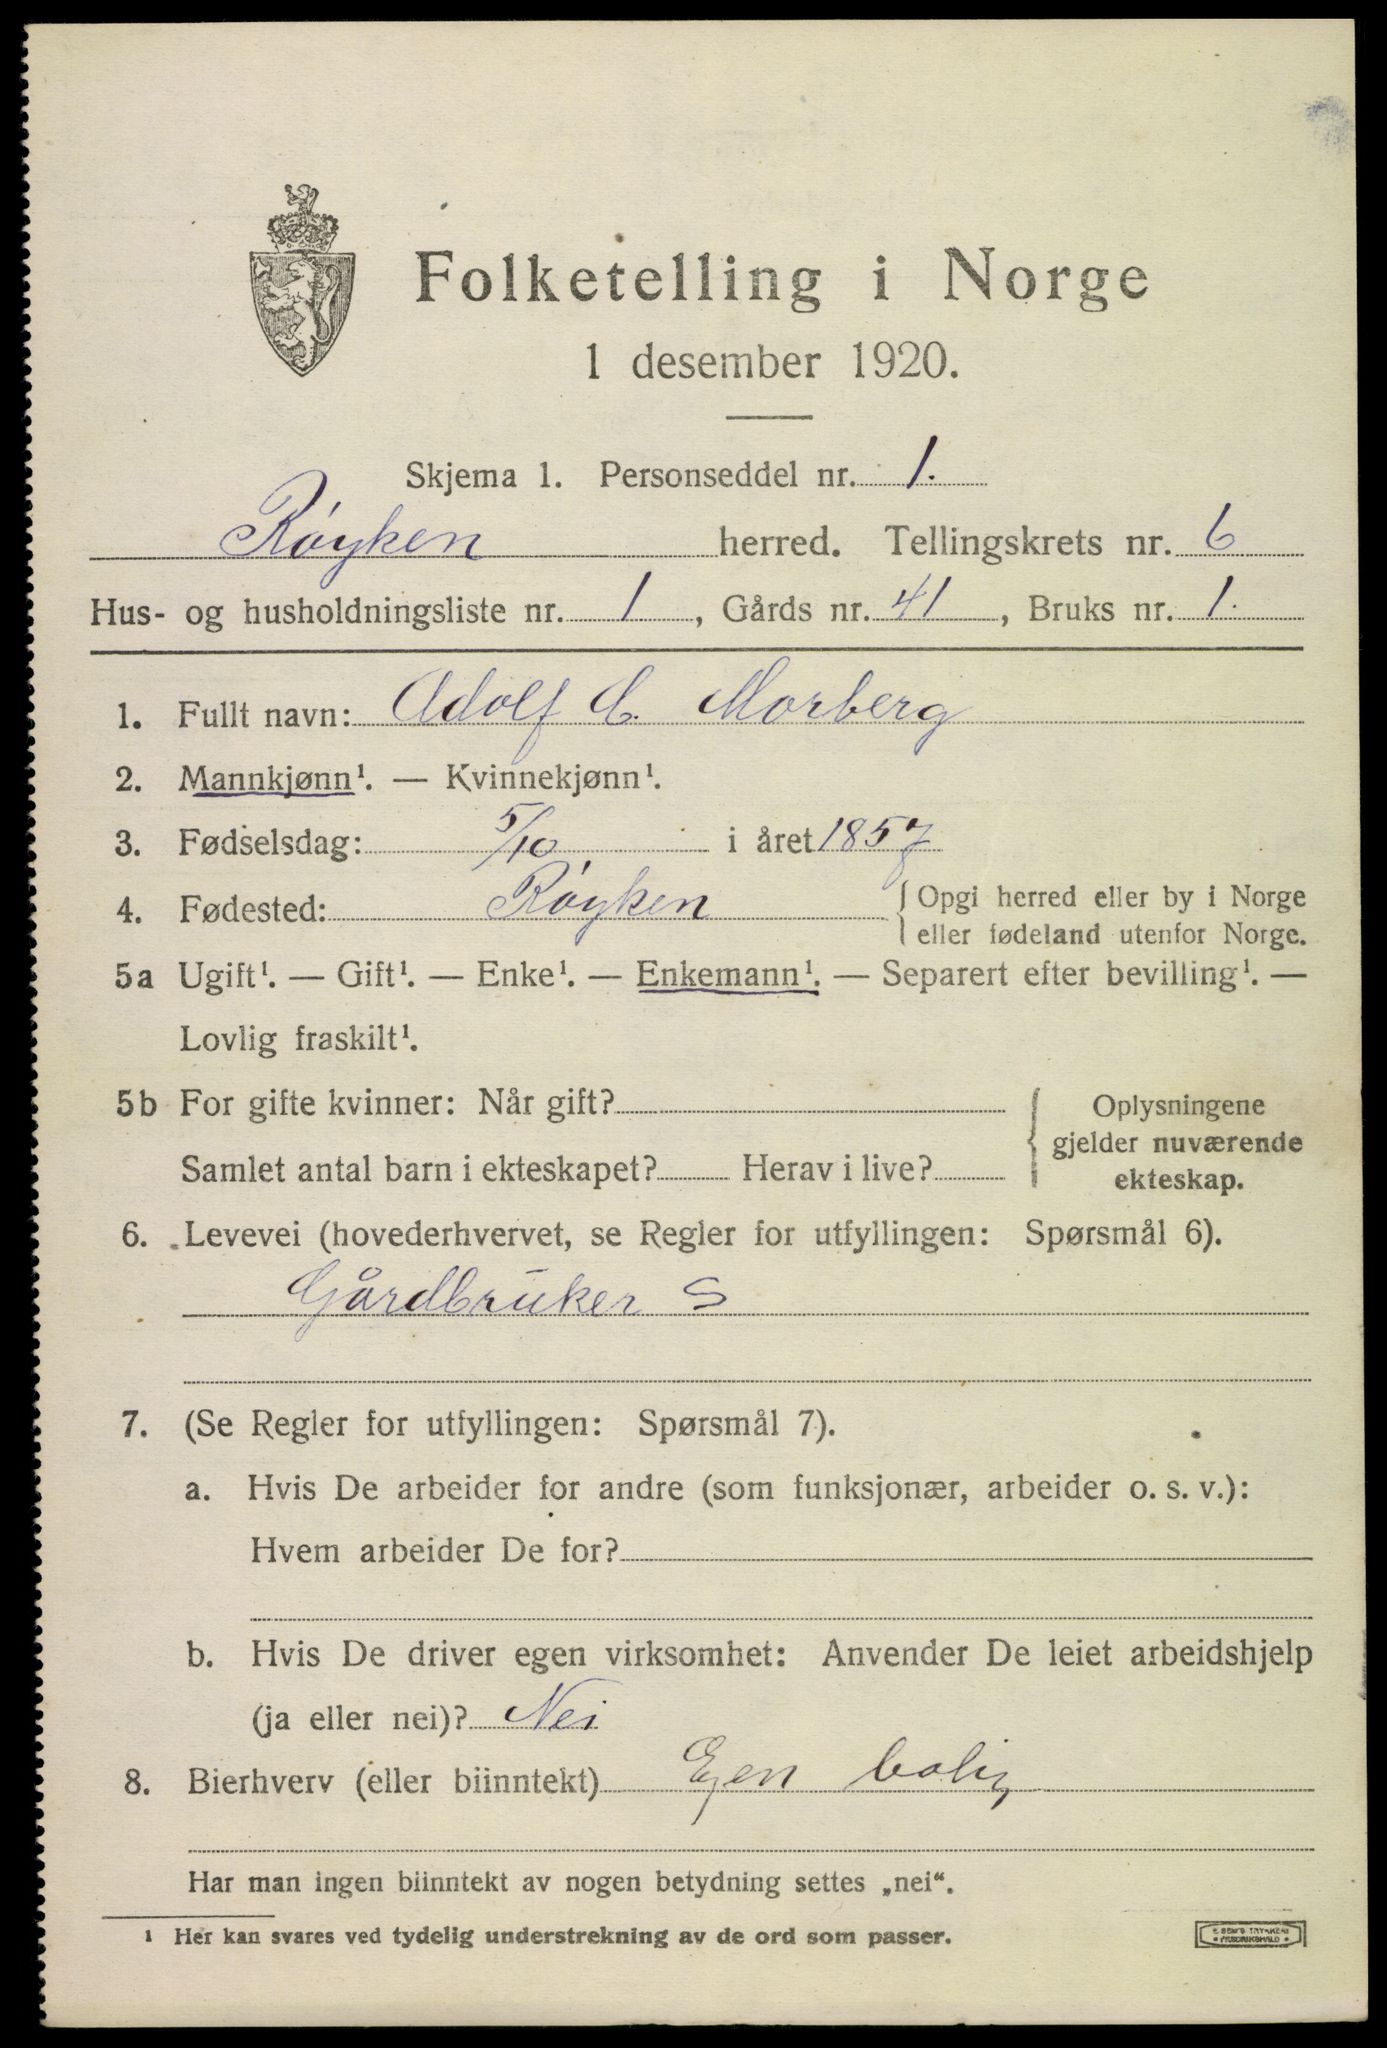 Folketelling i Norge
1 desember 1920.
Skjema 1. Personseddel nr. 1.
Røyken herred. Tellingskrets nr. 6
Hus- og husholdningsliste nr. 1, Gårds nr. 41, Bruks nr. 1.
1. Fullt navn: Adolf C. Morberg
2. Mannkjønn¹. — Kvinnekjønn¹.
3. Fødselsdag: 5/10 i året 1857
4. Fødested: Røyken { Opgi herred eller by i Norge
eller fødeland utenfor Norge.
5a Ugift¹. — Gift¹. — Enke¹. — Enkemann¹. — Separert efter bevilling¹. —
Lovlig fraskilt¹.
5b For gifte kvinner: Når gift? { Oplysningene
gjelder nuværende
Samlet antal barn i ekteskapet? Herav i live? ekteskap.
6. Levevei (hovederhvervet, se Regler for utfyllingen: Spørsmål 6).
Gårdbruker S
7. (Se Regler for utfyllingen: Spørsmål 7).
a. Hvis De arbeider for andre (som funksjonær, arbeider o. s. v.):
Hvem arbeider De for?
b. Hvis De driver egen virksomhet: Anvender De leiet arbeidshjelp
(ja eller nei)? Nei
8. Bierhverv (eller biinntekt) Egen bolig
Har man ingen biinntekt av nogen betydning settes „nei“.
¹ Her kan svares ved tydelig understrekning av de ord som passer.
FREDRIKSHALD